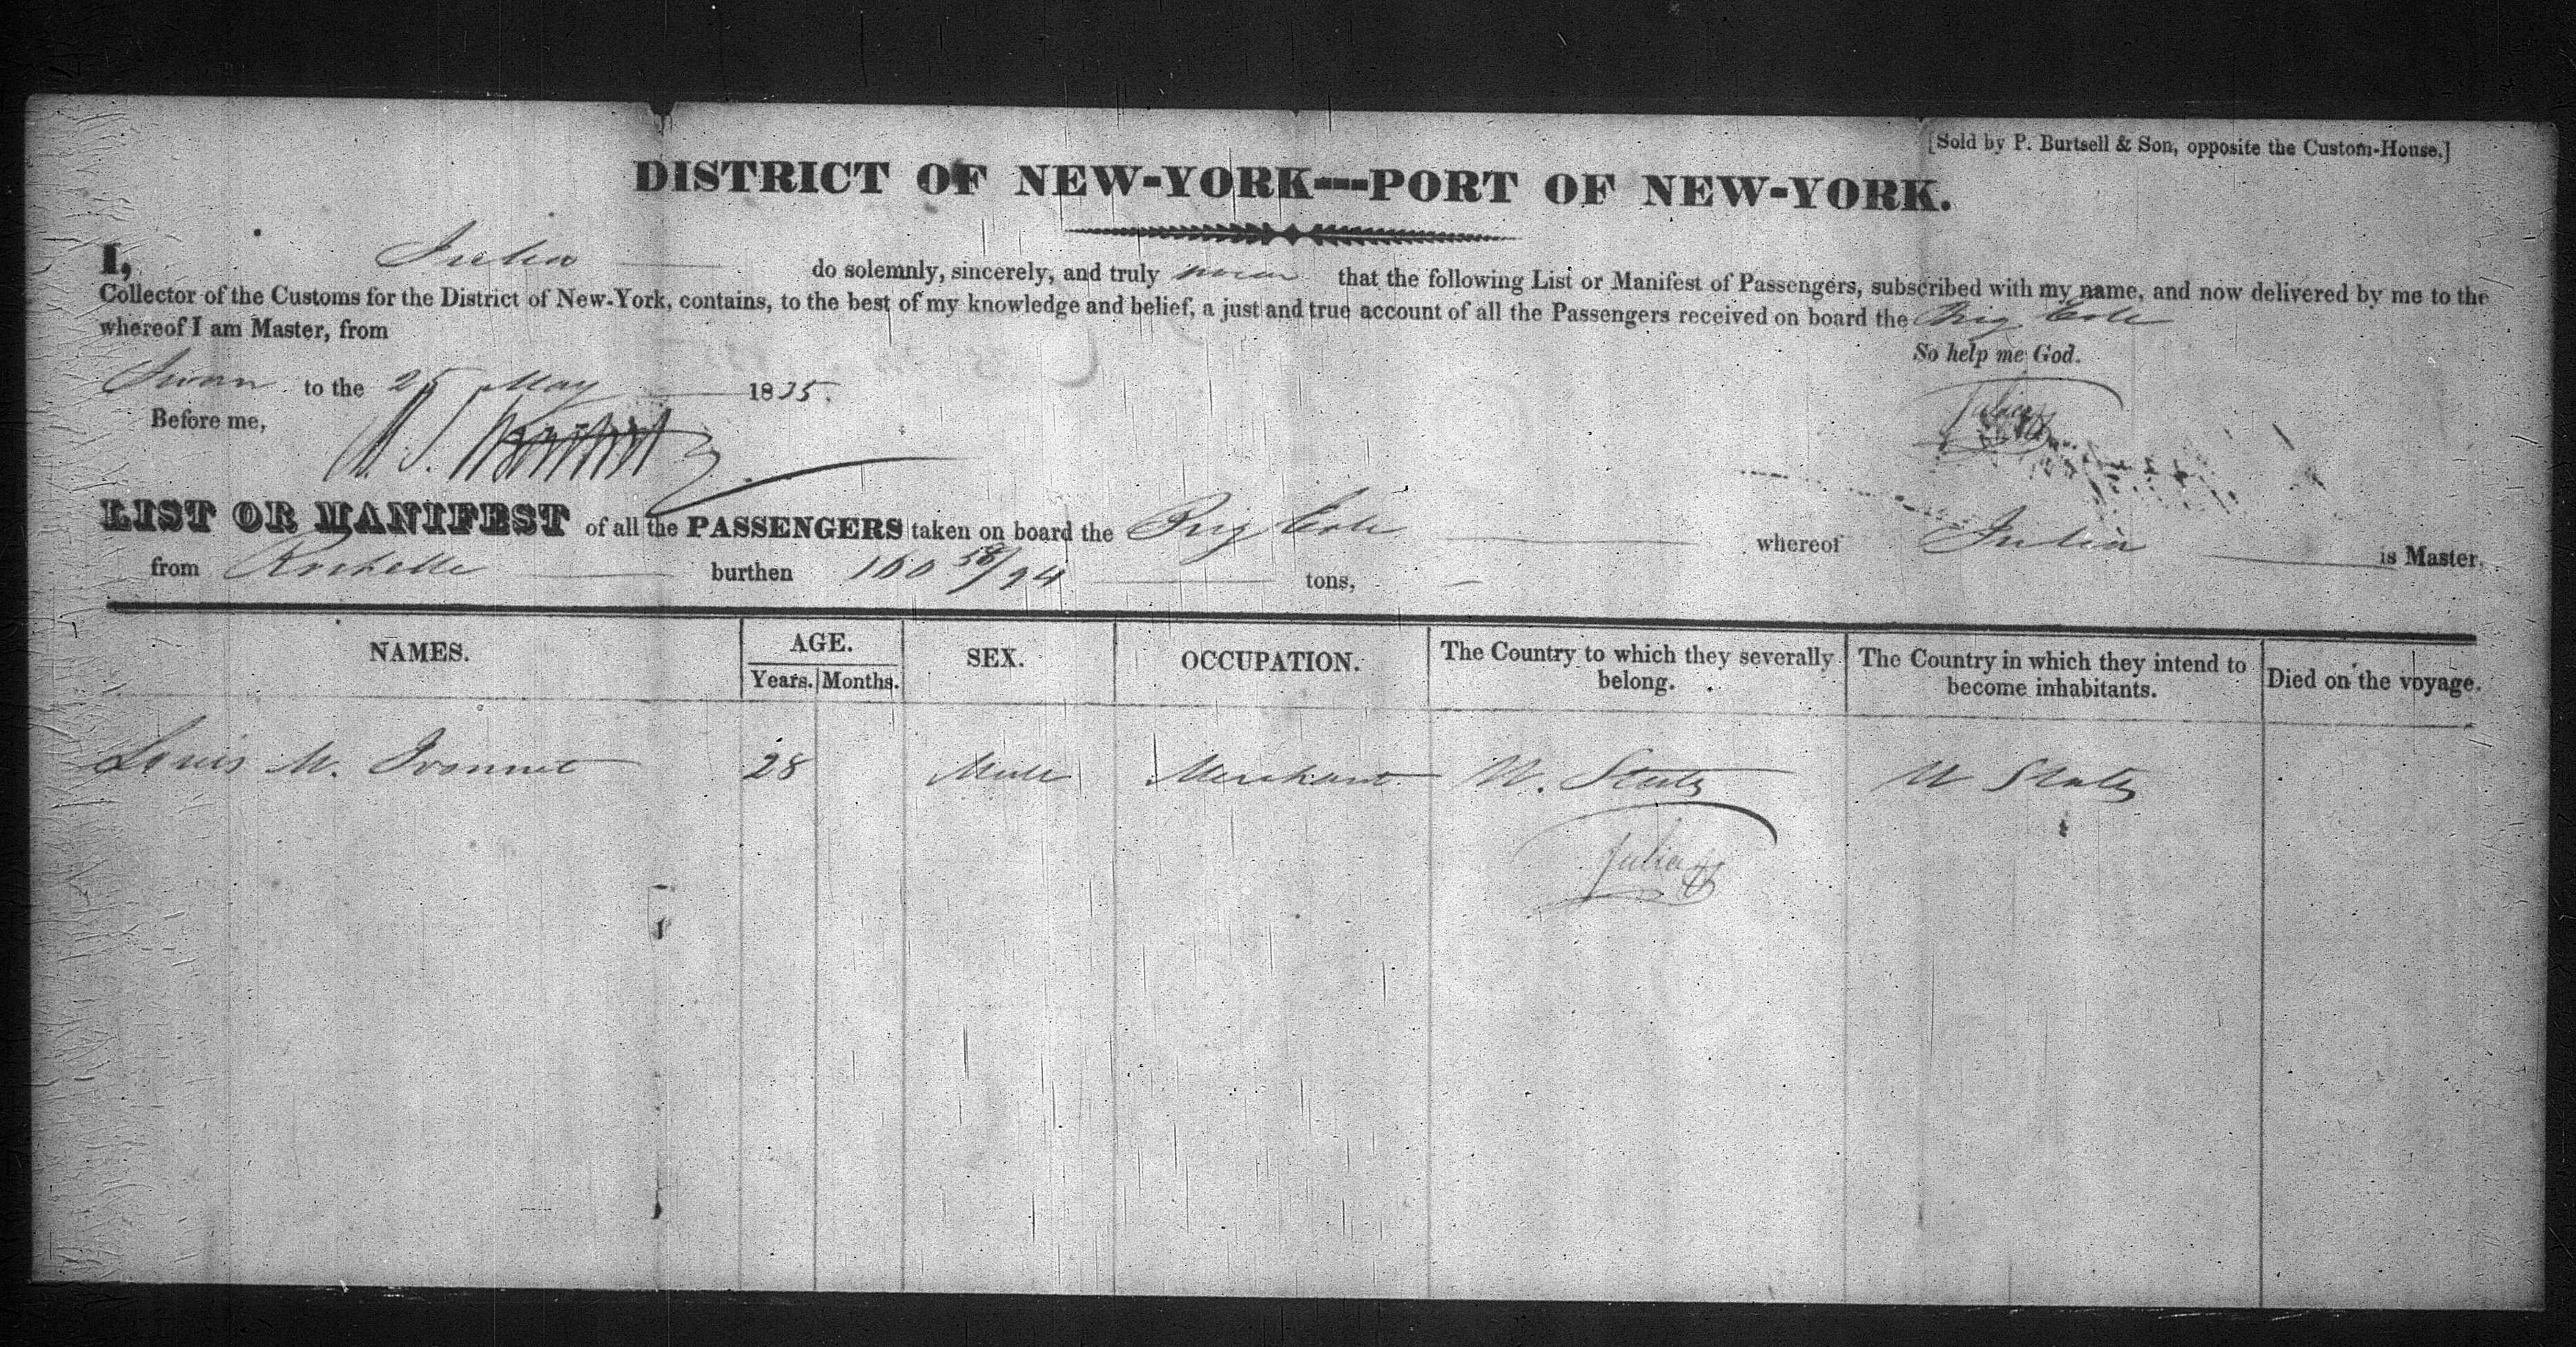 [Sold by P. Burtsell & Son, opposite the Custom-House.]
DISTRICT OF NEW-YORK---PORT OF NEW-YORK.
I, Julia do solemnly, sincerely, and truly swear that the following List or Manifest of Passengers, subscribed with my name, and now delivered by me to the
Collector of the Customs for the District of New-York, contains, to the best of my knowledge and belief, a just and true account of all the Passengers received on board the Brig
whereof I am Master, from
So help me God.
Sworn to the 25 May 1835.
Before me,
Julia
LIST OR MANIFEST of all the PASSENGERS taken on board the Brig whereof Julia is Master,
from Rochelle burthen 160 58/94 tons,
NAMES. AGE. SEX. OCCUPATION. The Country to which they severally belong. The Country in which they intend to become inhabitants. Died on the voyage.
Years. Months.
Louis M. 28 Male Merchant U. States U States
Julia